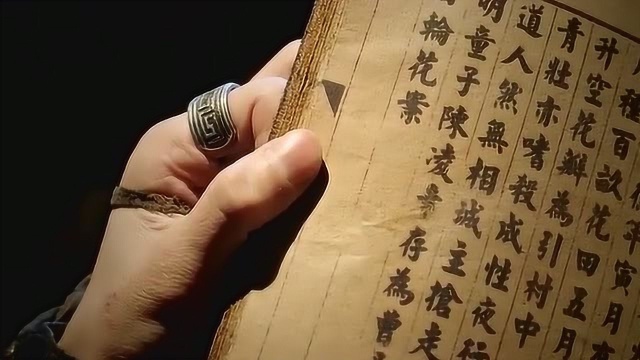 月種百畝花田五月
升空花瓣為引村中
青壯亦嗜殺成性夜行
道人然無相城主搶走
明童子陳凌存為曹
輪花案